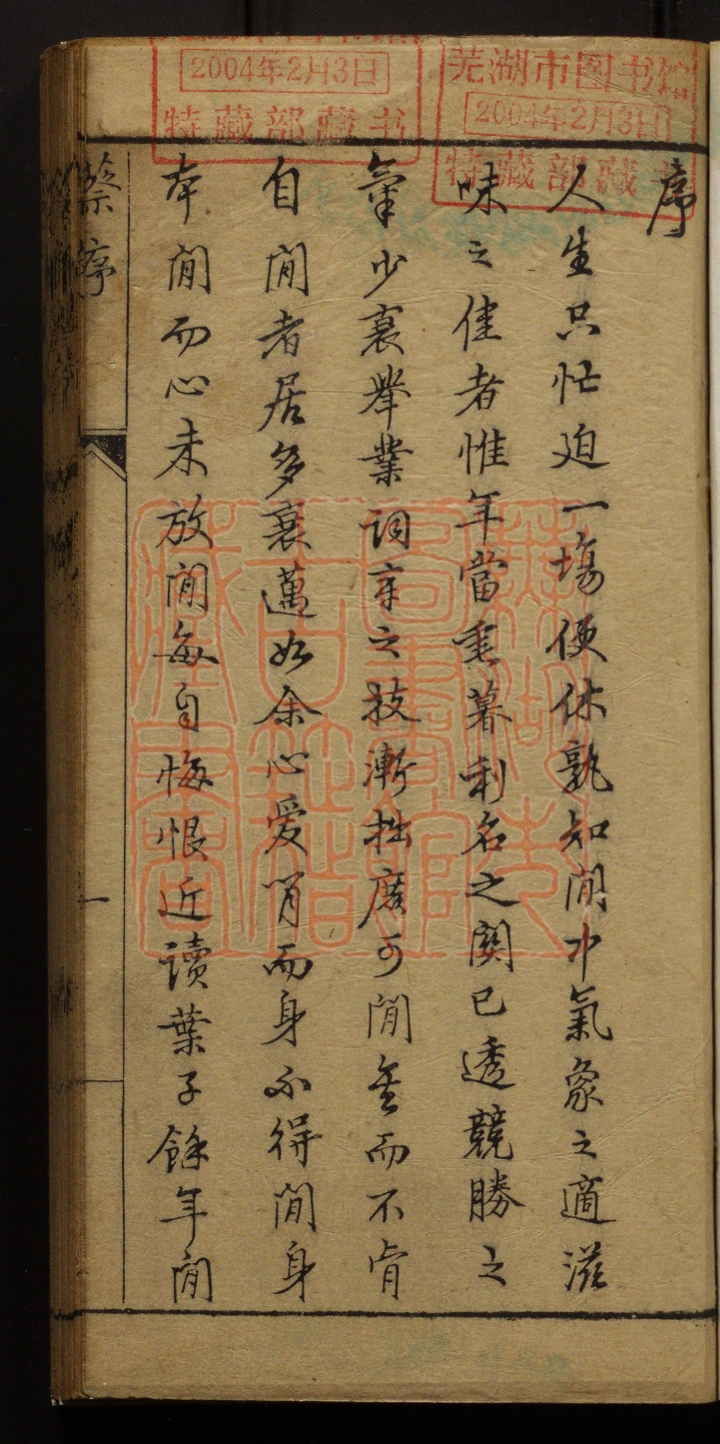 序
人生只忙迫一場便休孰知閒中氣象之適滋
味之佳者惟年當垂暮利名之関已透競勝之
氣少衰舉業詞章之技漸拙庶可閒矣而不肯
自閒者居多衰邁如余心爱閒而身不得閒身
本閒而心未放閒每自悔恨近讀葉子餘年閒
蔡序
一
2004年2月3日
特藏部藏书
芜湖市图书馆
2004年2月3日
特藏部藏书
蕪湖市
圖書館
古籍
藏書